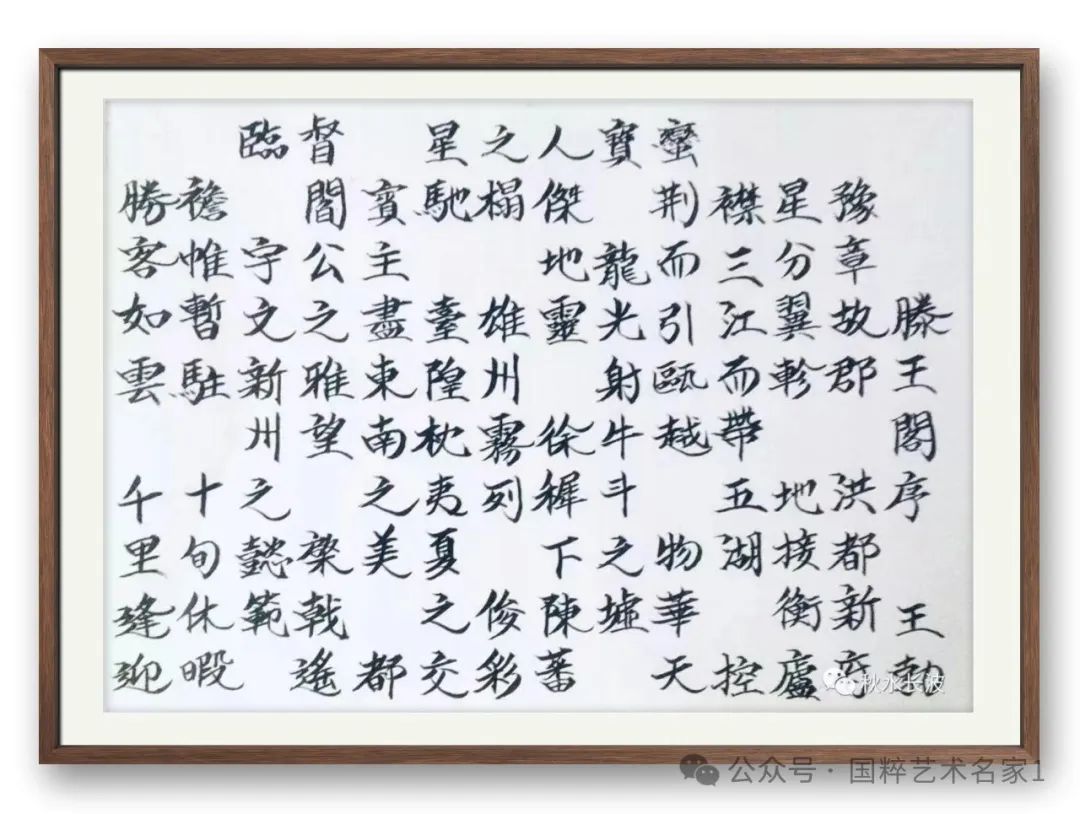 滕王閣序 王勃
豫章故郡 洪都新府
星分翼軫 地接衡廬
襟三江而帶五湖 控
蠻荆而引甌越 物華天
寶 龍光射牛斗之墟
人傑地靈 徐穉下陳蕃
之榻 雄州霧列 俊彩
星馳 臺隍枕夷夏之交
賓主盡東南之美 都
督閻公之雅望 棨戟遙
臨 宇文新州之懿範
襜帷暫駐 十旬休暇
勝客如雲 千里逢迎
秋水长波
公众号·国粹艺术名家1